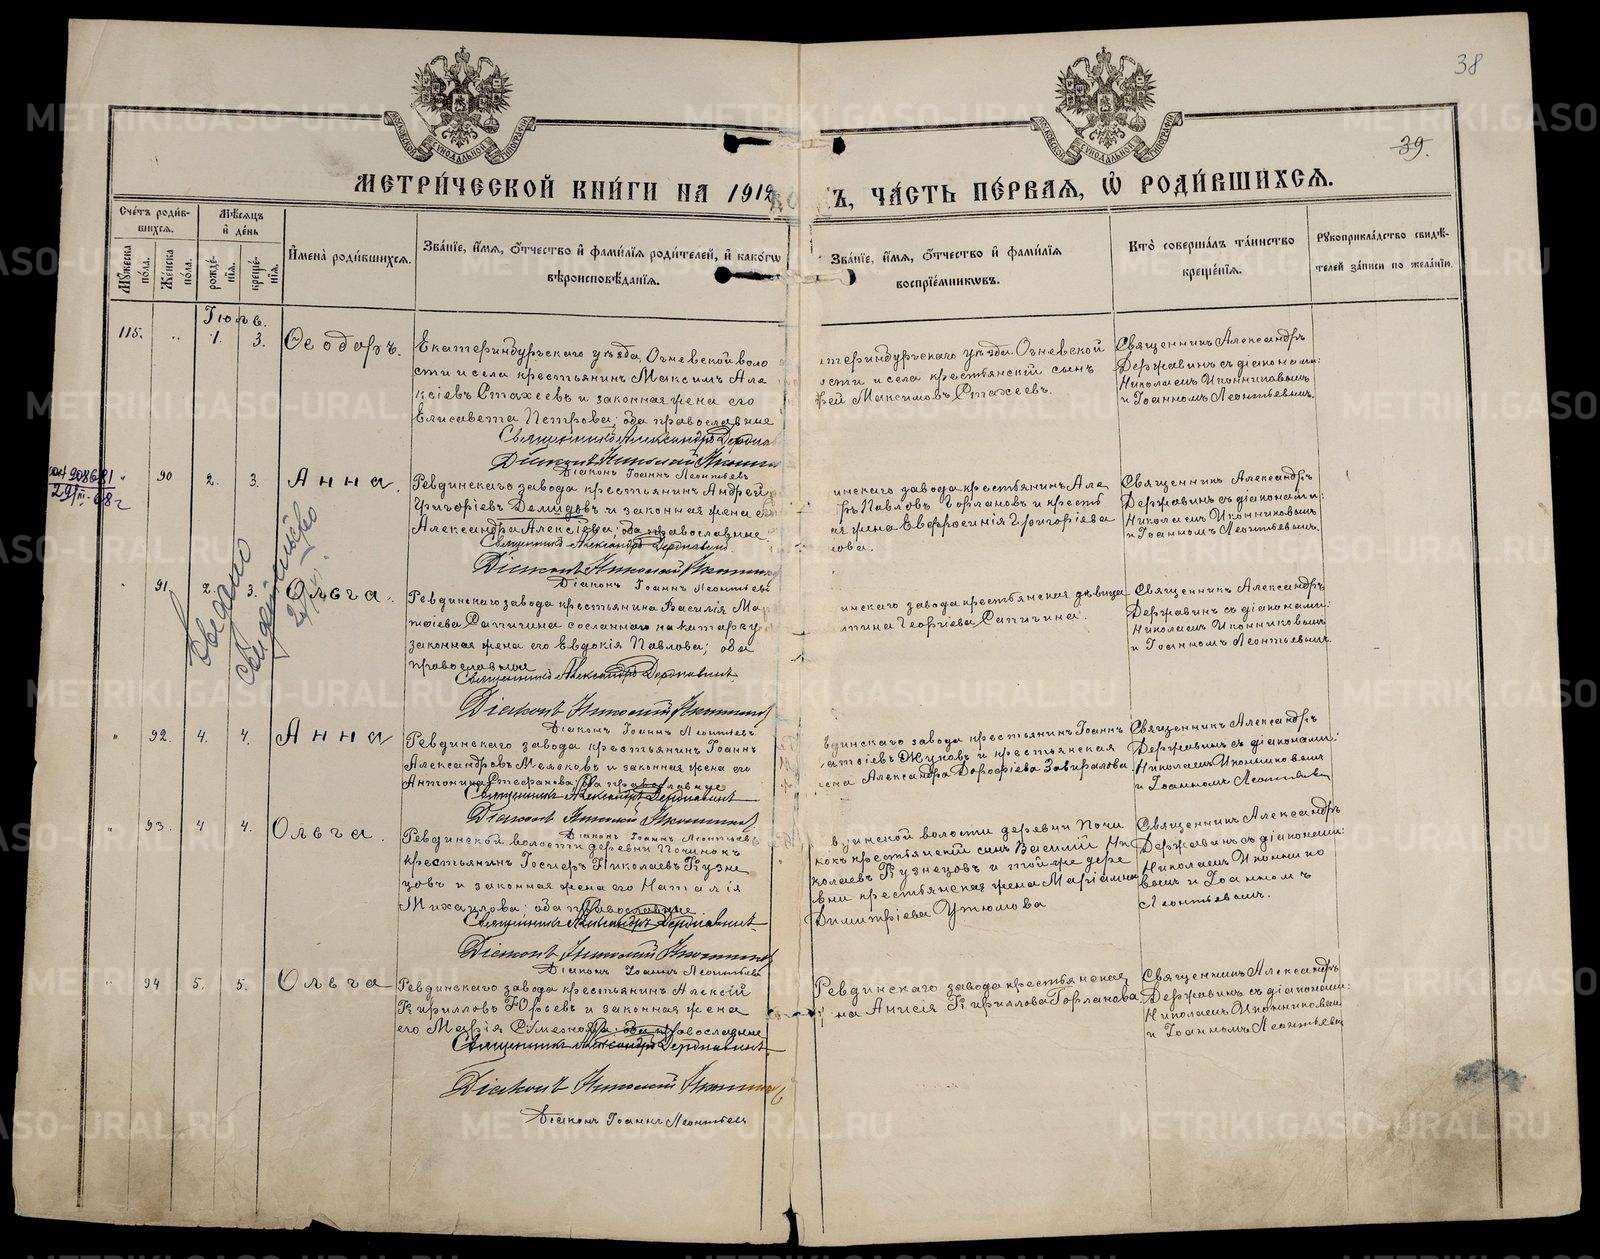 38
39.
МОСКОВСКОЙ СѴНОДАЛЬНОЙ ТИПОГРАФІИ
МОСКОВСКОЙ СѴНОДАЛЬНОЙ ТИПОГРАФІИ
МЕТРИ́ЧЕСКОЙ КНИ́ГИ НА 1912 ГОДЪ, ЧА́СТЬ ПЕ́РВАЯ, Ѡ҆ РОДИ́ВШИХСЯ.
Сче́тъ роди́в-
шихся.
Мѣ́сяцъ
и҆ де́нь
Му́жеска по́ла.
Же́нска по́ла.
рожде́-
нія.
креще́-
нія.
И҆мена̀ роди́вшихся.
Зва́ніе, и҆́мя, ѻ҆́тчество и҆ фами́лія роди́телей, и҆ како́гѡ
вѣроисповѣ́данія.
Зва́ніе, и҆́мя, ѻ҆́тчество и҆ фами́лія
воспріе́мниковъ.
Кто̀ соверша́лъ та́инство
креще́нія.
Рꙋкоприкла́дство свидѣ́-
телей за́писи по жела́нію.
Іюль.
115. „ 1. 3. Ѳеодоръ.
Екатеринбургскаго уѣзда, Огневской воло
сти и села крестьянинъ Максимъ Але
ксіевъ Стахеевъ и законная жена его
Елисавета Петрова; оба православные
Священникъ Александръ Державинъ
Діаконъ Николай Иконник
Діаконъ Іоаннъ Леонтьевъ
теринбургскаго уѣзда Огневской
сти и села крестьянскій сынъ
ей Максимовъ Стахеевъ.
Священникъ Александръ
Державинъ съ діаконами:
Николаемъ Иконниковымъ
и Іоанномъ Леонтьевымъ.
„ 90 2. 3. Анна.
Ревдинскаго завода крестьянинъ Андрей
Григорьевъ Демидовъ и законная жена е
Александра Алексіева; оба православные.
Священникъ Александръ Державинъ
Діаконъ Николай Иконник
Діаконъ Іоаннъ Леонтьевъ
инскаго завода крестьянинъ Але
ръ Павловъ Горлановъ и крест
ая жена Евфросинія Григоріева
ова.
Священникъ Александръ
Державинъ съ діаконами:
Николаемъ Иконниковымъ
и Іоанномъ Леонтьевымъ.
Выдано
свидѣтельство
„ 91 2. 3. Ольга.
Ревдинскаго завода крестьянина Василія Ма
тѳіева Сапичина сосланнаго на каторгу
законная жена его Евдокія Павлова; оба
православные
Священникъ Александръ Державинъ
Діаконъ Николай Иконников
Діаконъ Іоаннъ Леонтьевъ
инскаго завода крестьянская дѣвица
тина Георгіева Сапичина.
Священникъ Александръ
Державинъ съ діаконами:
Николаемъ Иконниковымъ
и Іоанномъ Леонтьевымъ.
„ 92. 4. 4. Анна
Ревдинскаго завода крестьянинъ Іоаннъ
Александровъ и законная жена его
Антонина Стефанова; оба православные
Священникъ Александръ Державинъ
Діаконъ Николай Иконников
Діаконъ Іоаннъ Леонтьевъ
вдинскаго завода крестьянинъ Іоаннъ
атѳіевъ Жуковъ и крестьянская
жена Александра Дороѳіева Завиралова.
Священникъ Александръ
Державинъ съ діаконами:
Николаемъ Иконниковымъ
и Іоанномъ Леонтьевым
„ 93. 4 4. Ольга.
Ревдинской волости деревни Починокъ
крестьянинъ Іосифъ Николаевъ Кузне
цовъ и законная жена его Наталія
Михаилова; оба православные
Священникъ Александръ Державинъ
Діаконъ Николай Иконников
Діаконъ Іоаннъ Леонтьевъ
вдинской волости деревни Почи
нокъ крестьянскій сынъ Василій Ни
колаевъ Кузнецовъ и той же дере
вни крестьянская жена Маріамна
Димитріева Утюмова
Священникъ Александръ
Державинъ съ діаконами:
Николаемъ Иконнико
вымъ и Іоанномъ
Леонтьевымъ.
„ 94 5. 5. Ольга
Ревдинскаго завода крестьянинъ Алексій
Кирилловъ Юрьевъ и законная жена
его Марія Симеонова; оба православные
Священникъ Александръ Державинъ
Діаконъ Николай Иконников
Діаконъ Іоаннъ Леонтьевъ
Ревдинскаго завода крестьянская
на Анисія Кириллова Горланова
Священникъ Александръ
Державинъ съ діаконами:
Николаемъ Иконниковым
и Іоанномъ Леонтьевым
METRIKI.GASO-URAL.RU